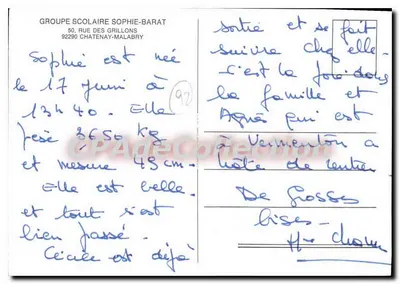 GROUPE SCOLAIRE SOPHIE-BARAT
50, RUE DES GRILLONS
92290 CHATENAY-MALABRY
Sophie est née
le 17 juin à
13h40. Elle
pèse 3650 kg
et mesure 49 cm.
Elle est belle.
et tout s'est
bien passé.
Cécile est déjà
92
sortie et se fait
suivre chez elle.
C'est la joie dans
la famille et
Agnès qui est
à Vermenton a
hâte de rentrer
De Grosses
bises.
CPA de Collection